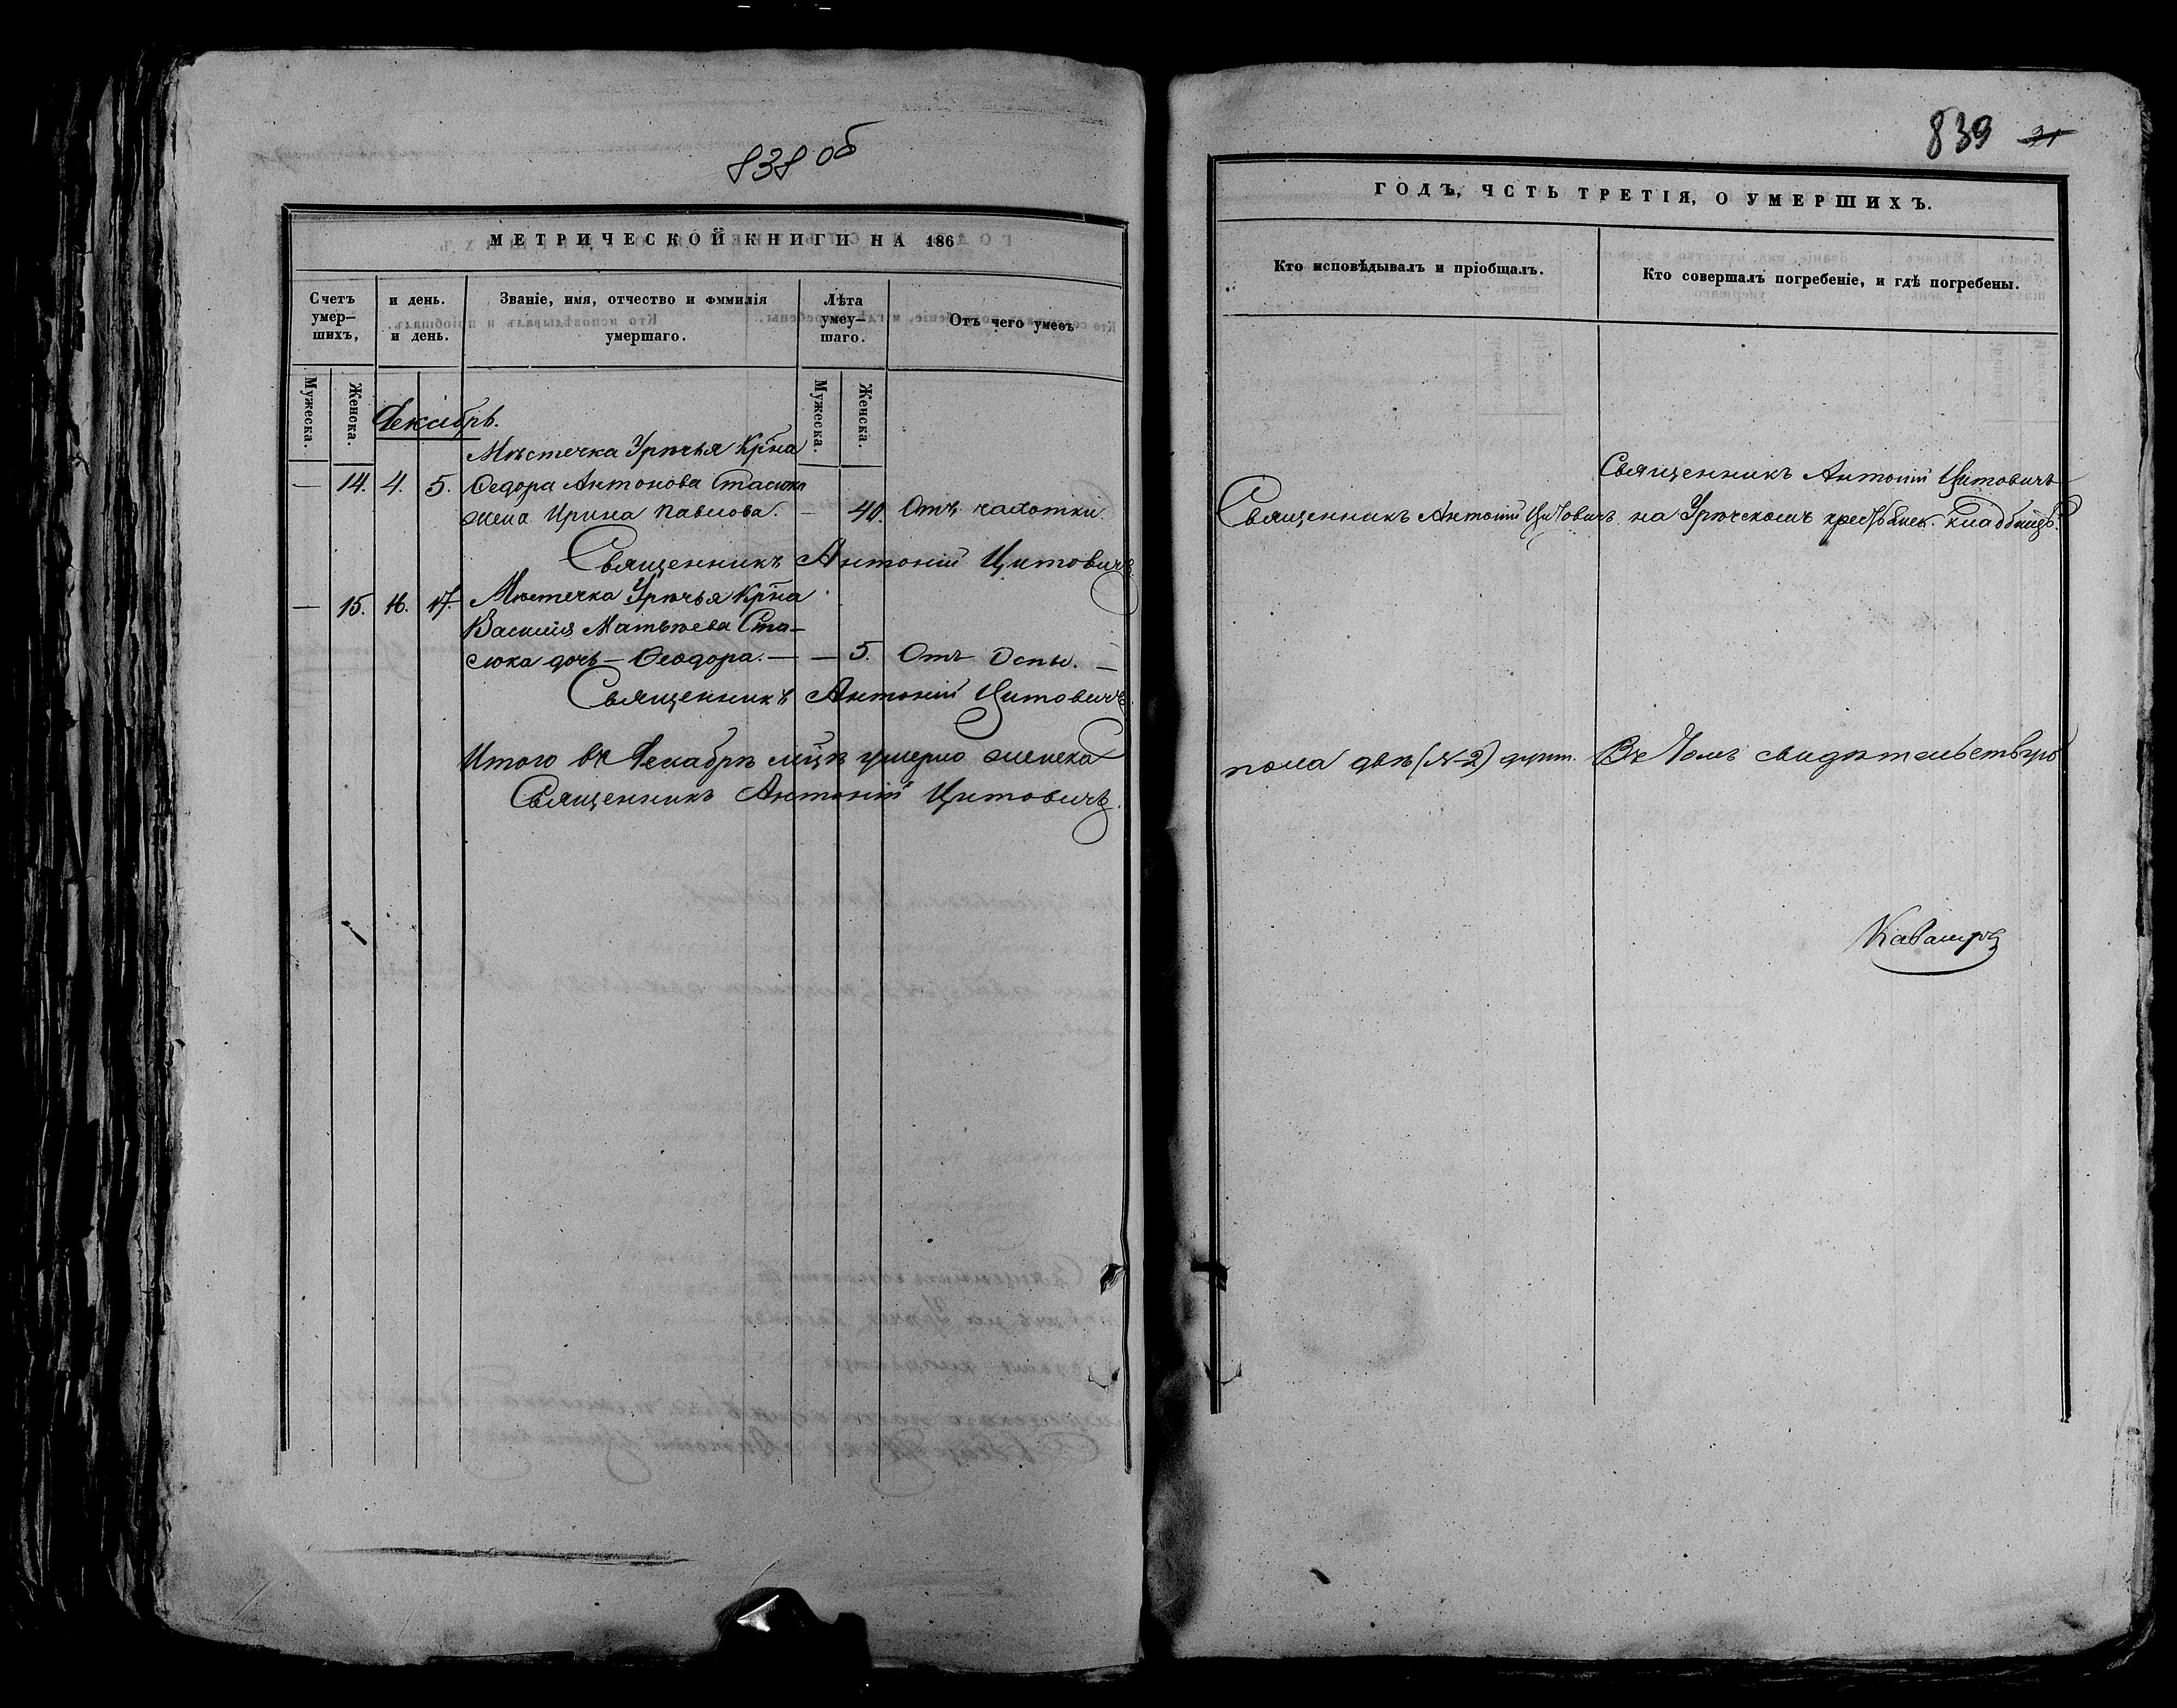 838 об
МЕТРИЧЕСКОЙ КНИГИ НА 186
Счетъ умер-шихъ,
и день.
и день.
Званіе, имя, отчество и фммилія умершаго.
Лѣта умеу-шаго.
Отъ чего умеѳъ
Мужеска.
Женска.
Мужеска.
Женска.
Декабрь.
Мѣстечка Урѣчья Кр̃на
— 14. 4. 5. Ѳедора Антонова Стасюка
жена Ирина Павлова. — 40. Отъ чахотки.
Священникъ Антоній Цитовичъ
— 15. 16. 17. Мѣстечка Урѣчья Кр̃на
Василія Матѣѣева Ста-
сюка дочь — Ѳеодора. — — 5. Отъ Оспы. —
Священникъ Антоній Цитовичъ.
Итого въ Декабрѣ мц̃ѣ умерло женска
Священникъ Антоній Цитовичъ.
839 21
ГОДЪ, ЧСТЬ ТРЕТІЯ, О УМЕРШИХЪ.
Кто исповѣдывалъ и пріобщалъ.
Кто совершалъ погребеніе, и гдѣ погребены.
Священникъ Антоній Цитовичъ
Священникъ Антоній Цитовичъ. на Урѣчскомъ кладбищѣ.
пола двѣ (№ 2) Въ томъ свидѣтельствую